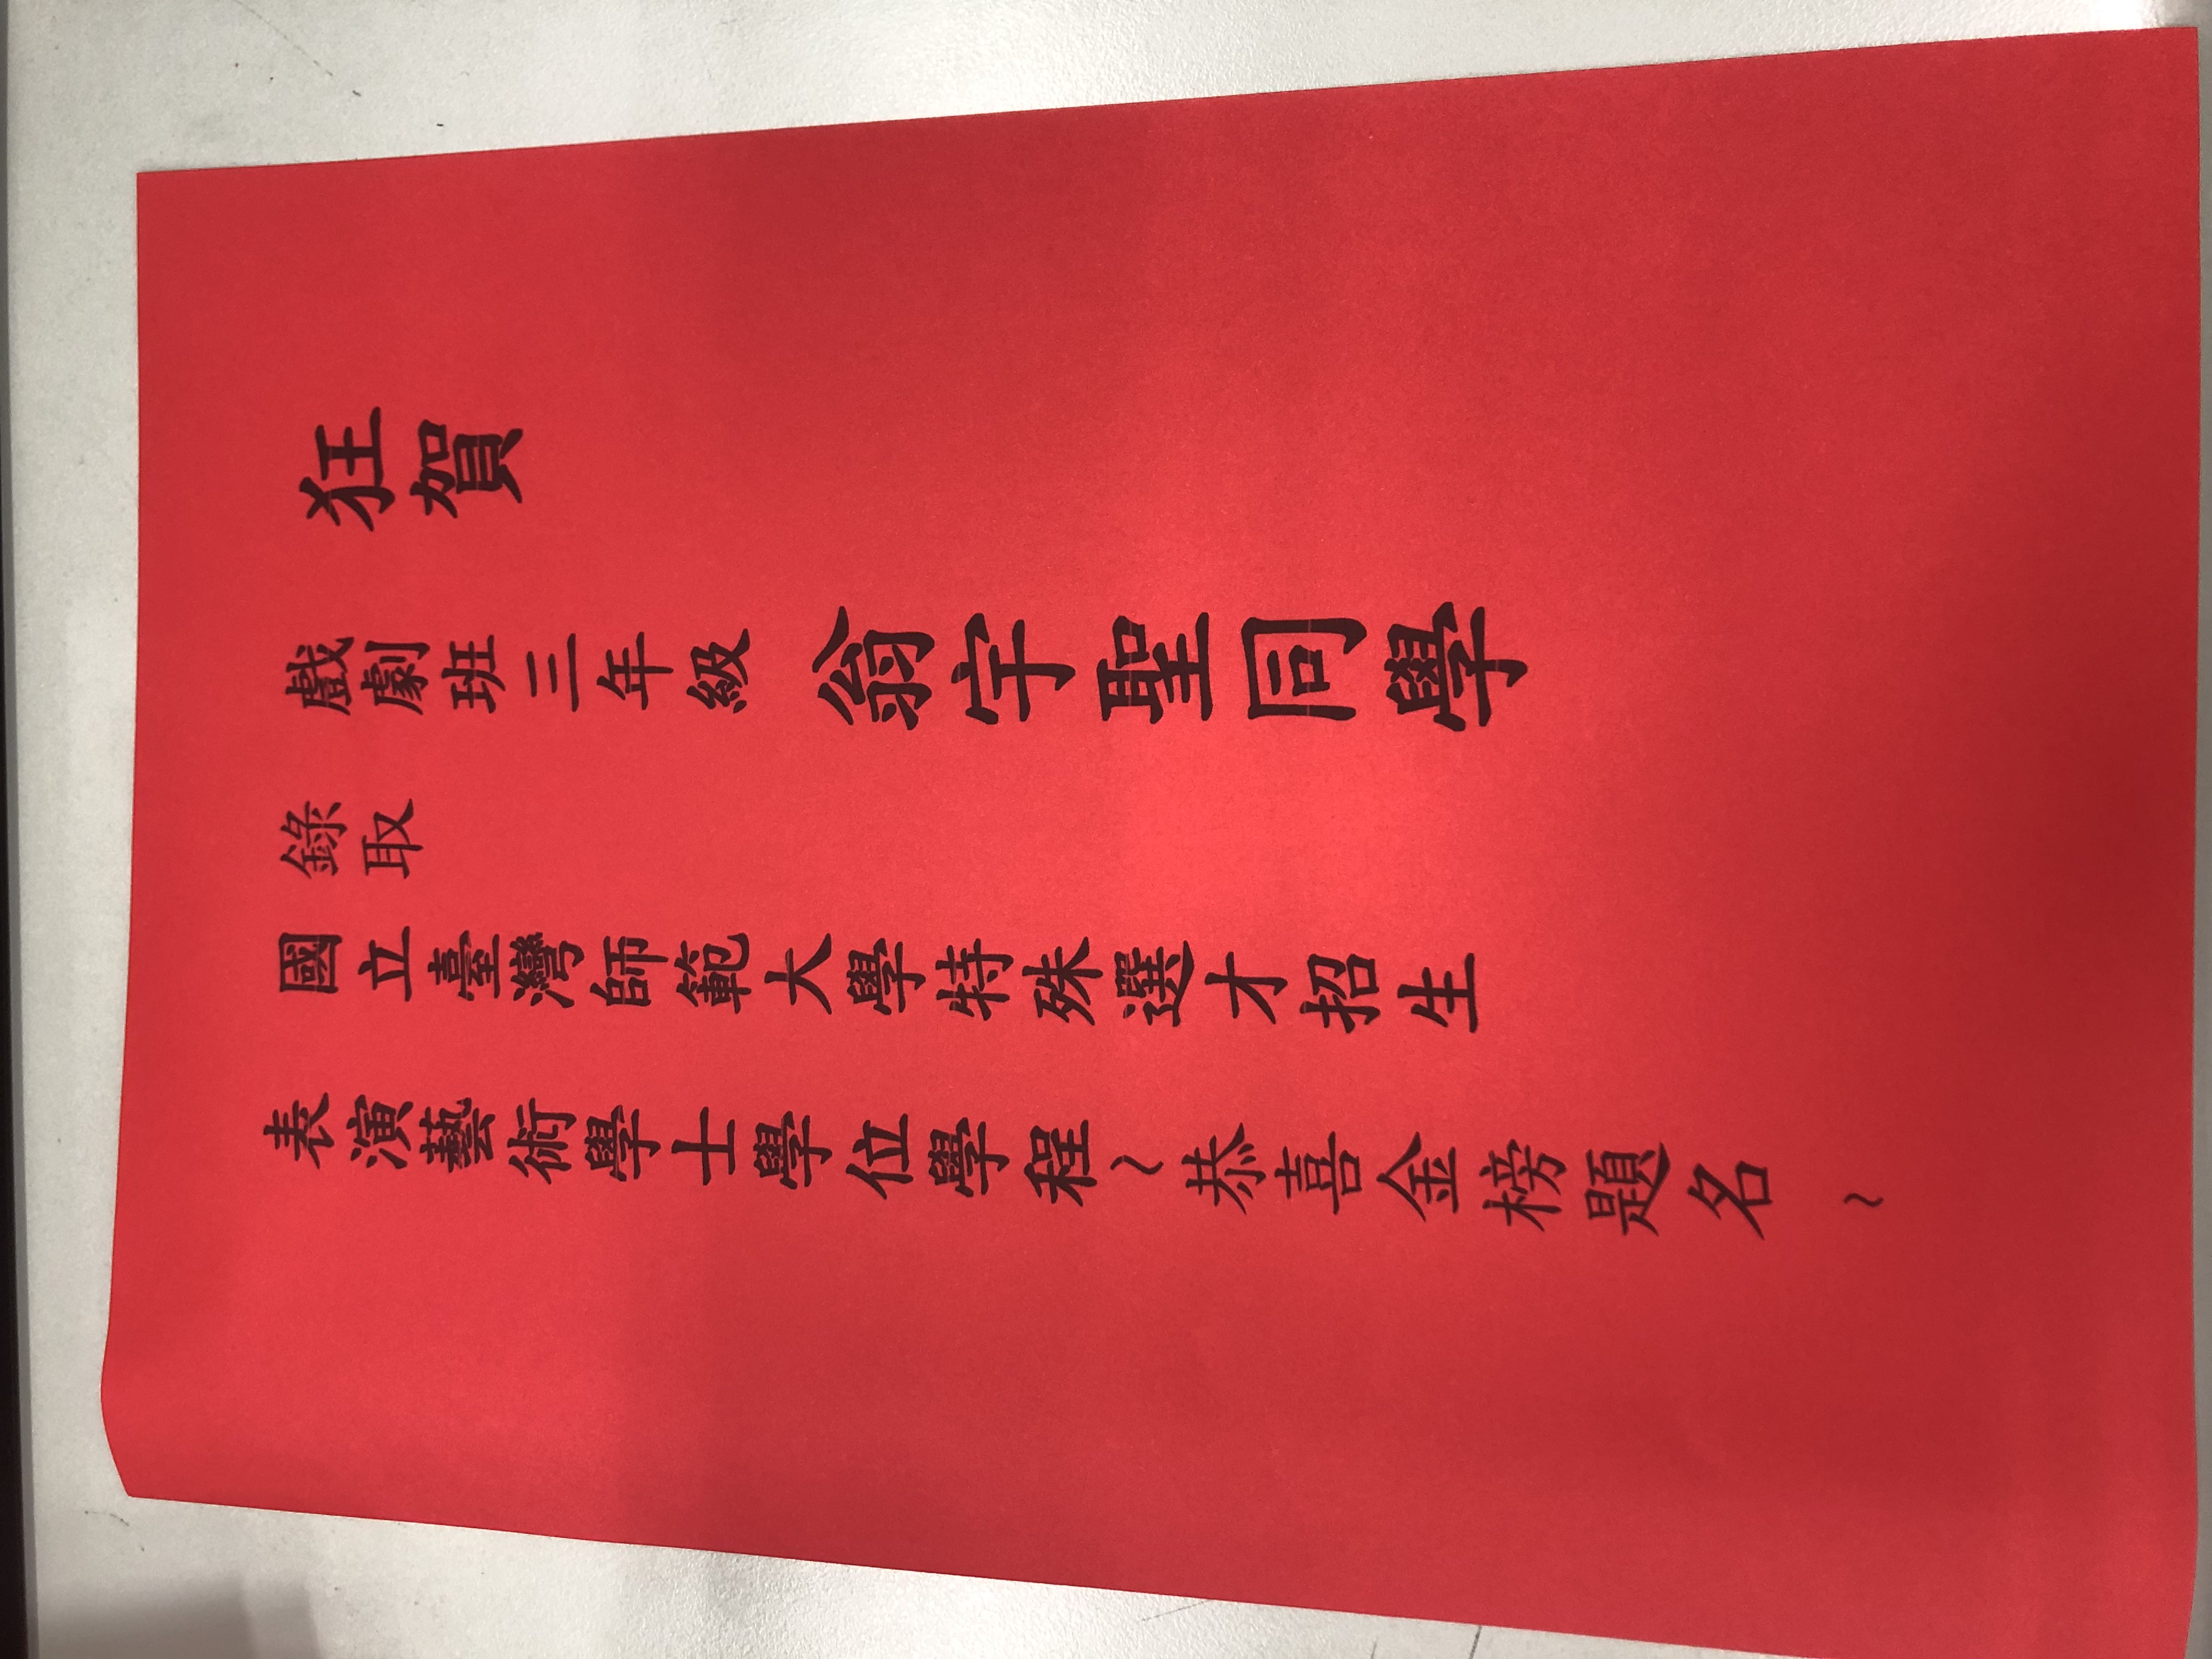 狂賀
戲劇班三年級 翁宇聖同學
錄取
國立臺灣師範大學特殊選才招生
表演藝術學士學位學程～恭喜金榜題名～